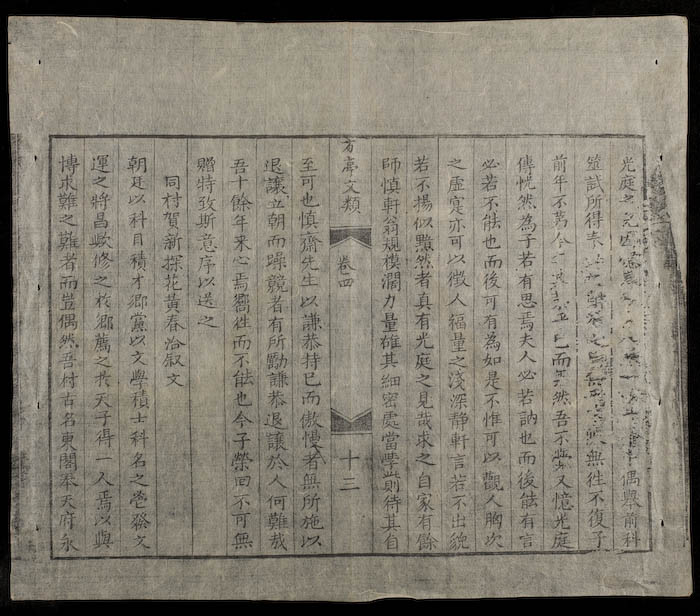 光庭之偶舉前科
筵試所得無徃不復子
前年不第今已而然吾不又憶光庭
傳恍然為子若有思焉夫人必若訥也而後能有言
必若不能也而後可有為如是不惟可以觀人胸次
之虛寔亦可以徵人福量之淺深静軒言若不出貌
若不揚似黯然者真有光庭之見哉求之自家有餘
師慎軒翁規模濶力量確其細密處當學此則待其自
方亭文類
卷四
十三
至可也慎齋先生以謙恭持已而傲慢者無所施以
退讓立朝而躁競者有所勵謙恭退讓於人何難哉
吾十餘年來心焉嚮徃而不能也今子榮回不可無
贈特致斯意序以送之
同村賀新探花黃春洽叙文
朝廷以科目積才鄉黨以文學積士科名之發文
運之將昌歟修之於鄉薦之於天子得一人焉以與
博求難之難者而豈偶然吾村古名東閣奉天府永